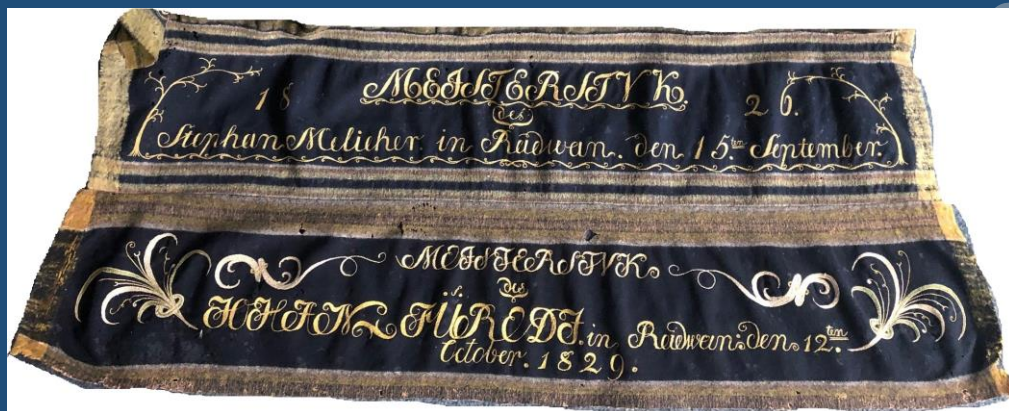 MEISTERSTVK.
18 des 26.
Stephan Melicher. in Radwan. den 15.ten September.
MEISTERSTVK.
des
FÜREDI. in Radwan. den 12.ten
October. 1829.